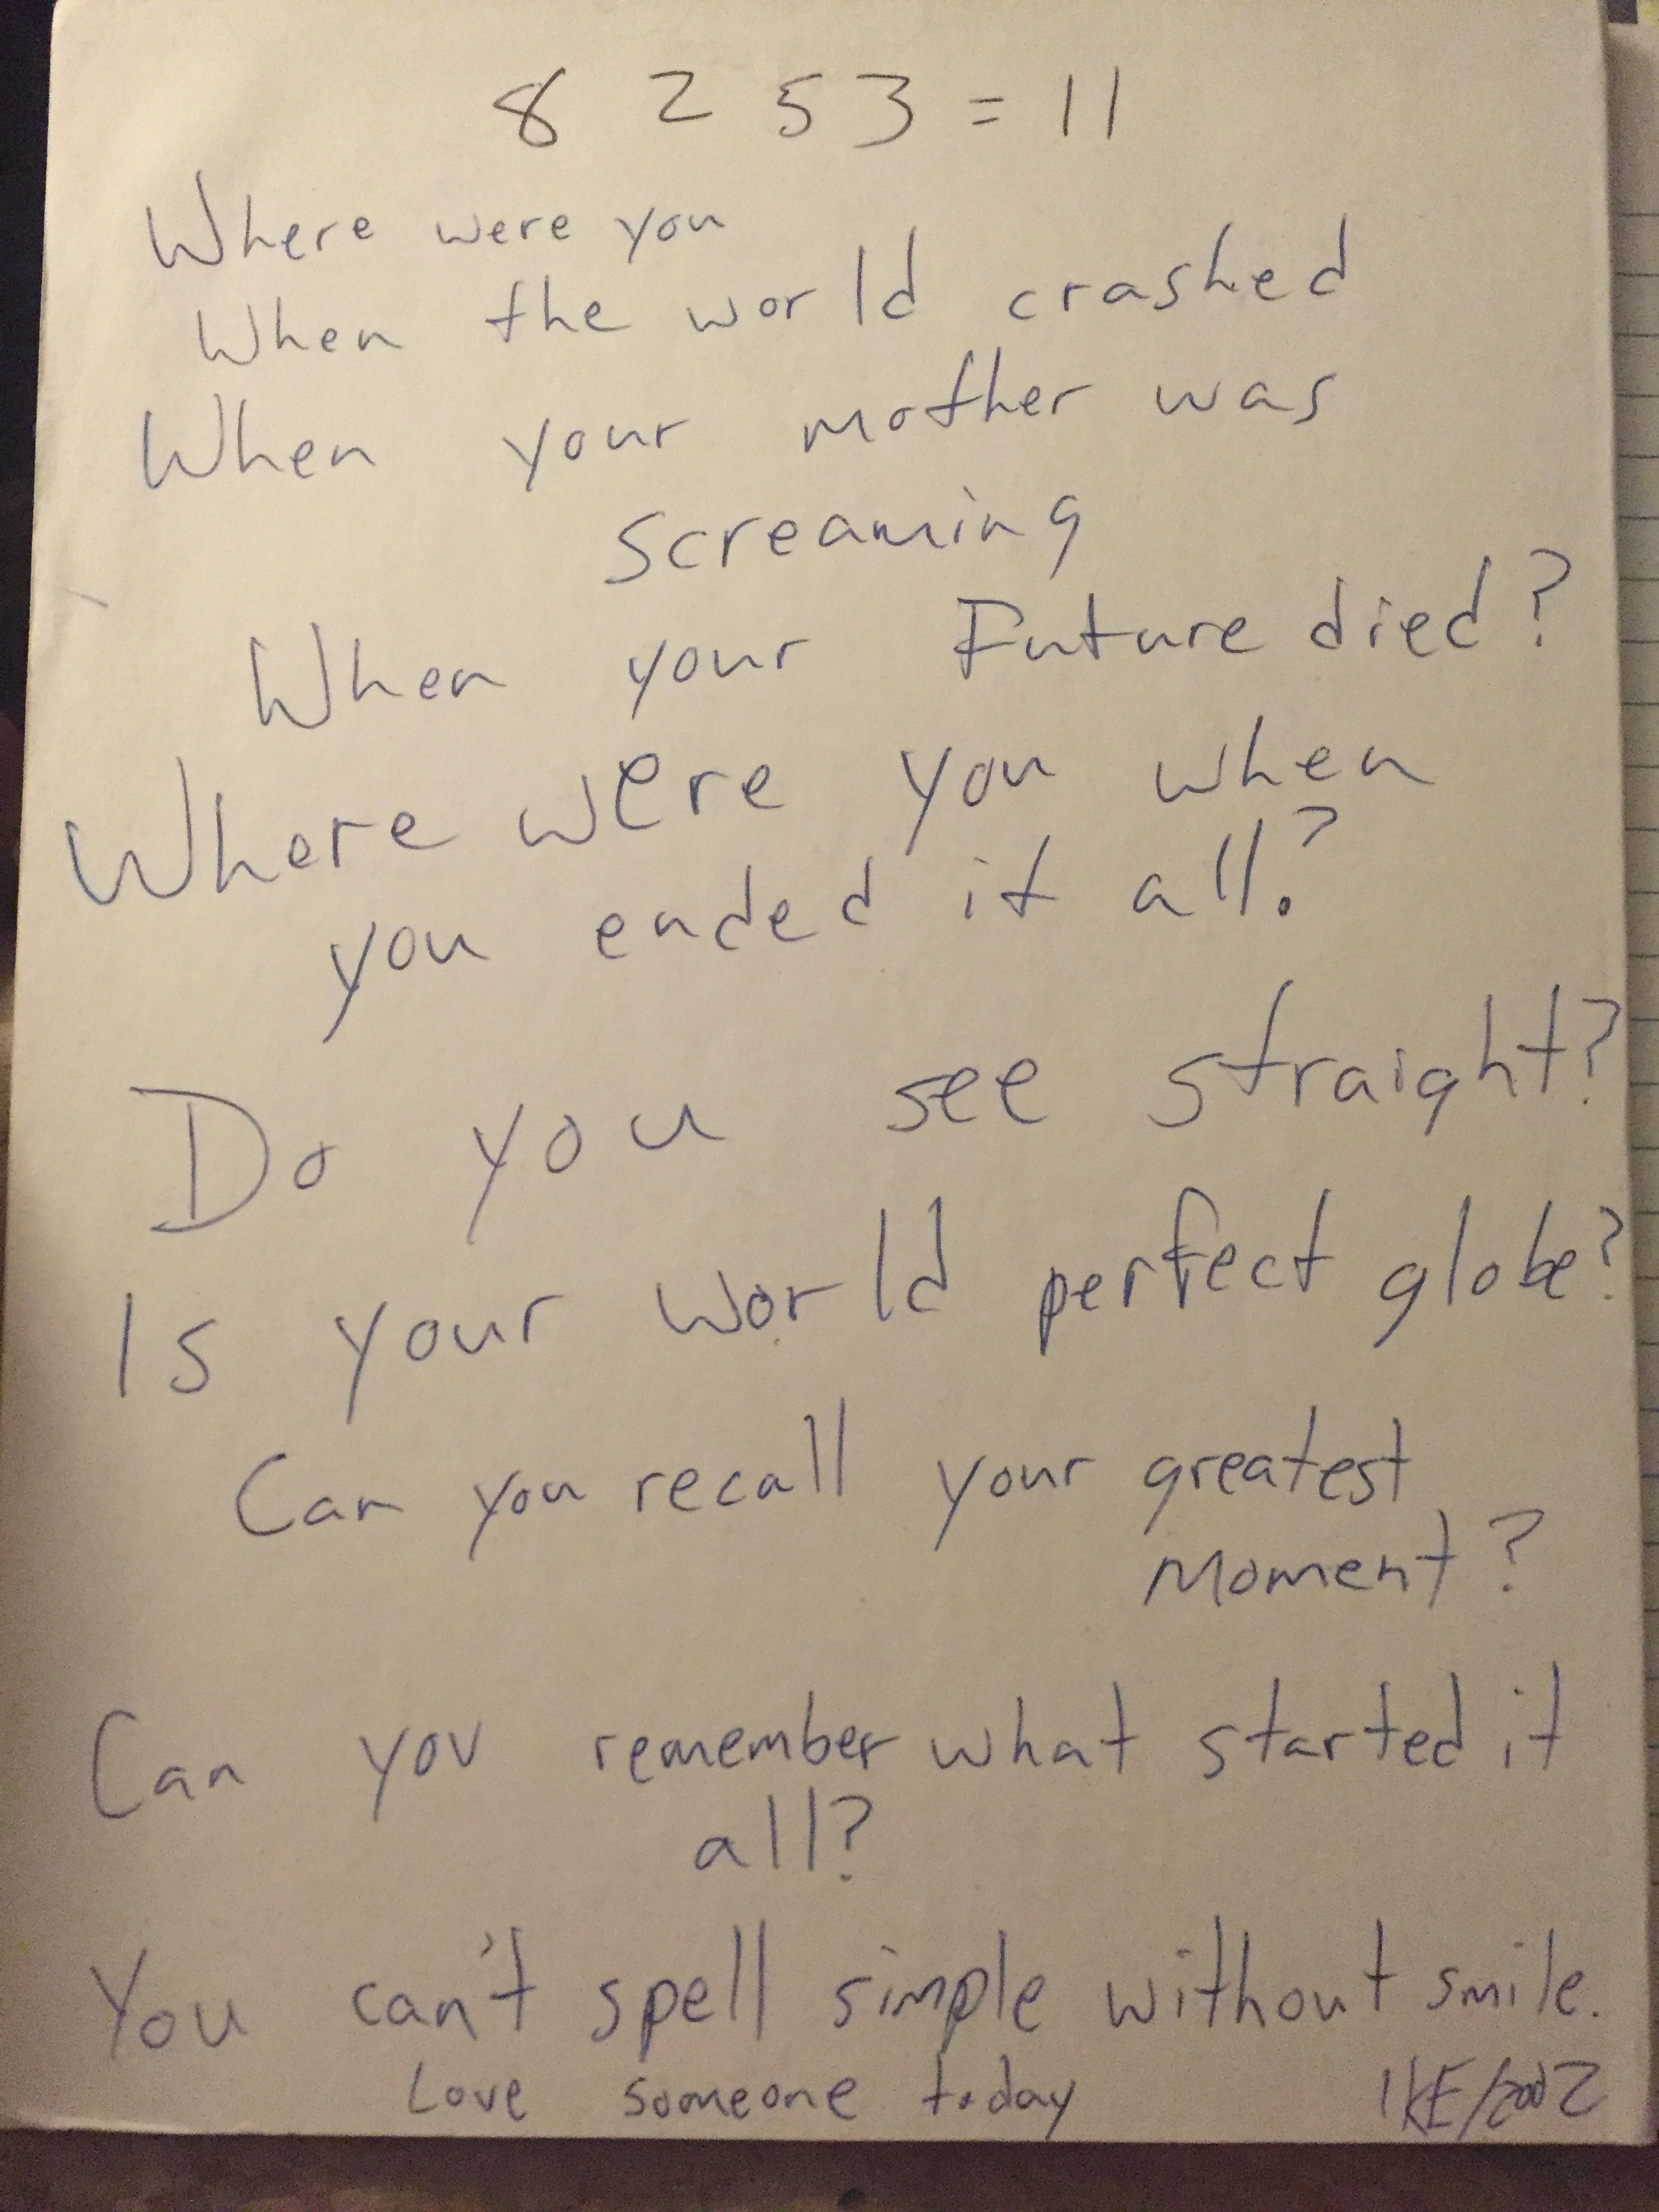 8 2 53 = 11
Where were you
When the world crashed
When your mother was
screaming
When your Future died?
Where were you when
you ended it all?
Do you see straight?
Is your world perfect globe?
Can you recall your greatest
Moment?
Can you remember what started it
all?
You can't spell simple without smile.
Love someone today
IKE/2002